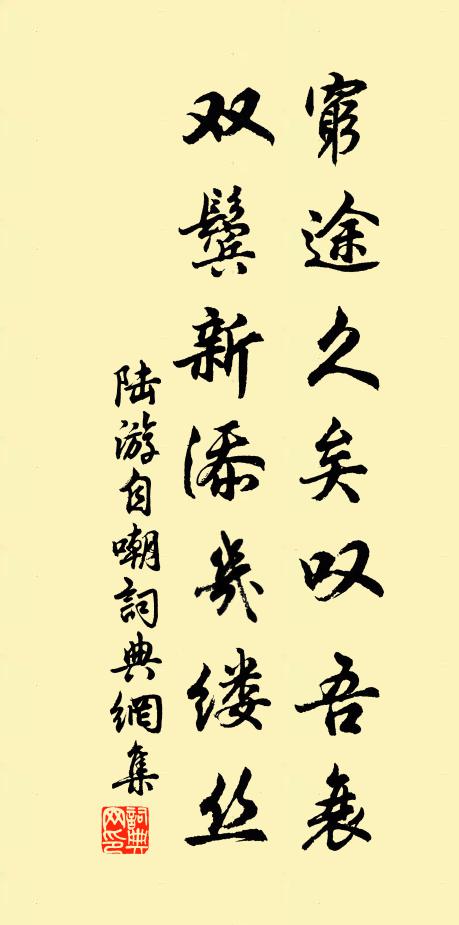 窮途久矣叹吾衰
双鬓新添幾缕丝
陆游自嘲詞典網集
詞典网印